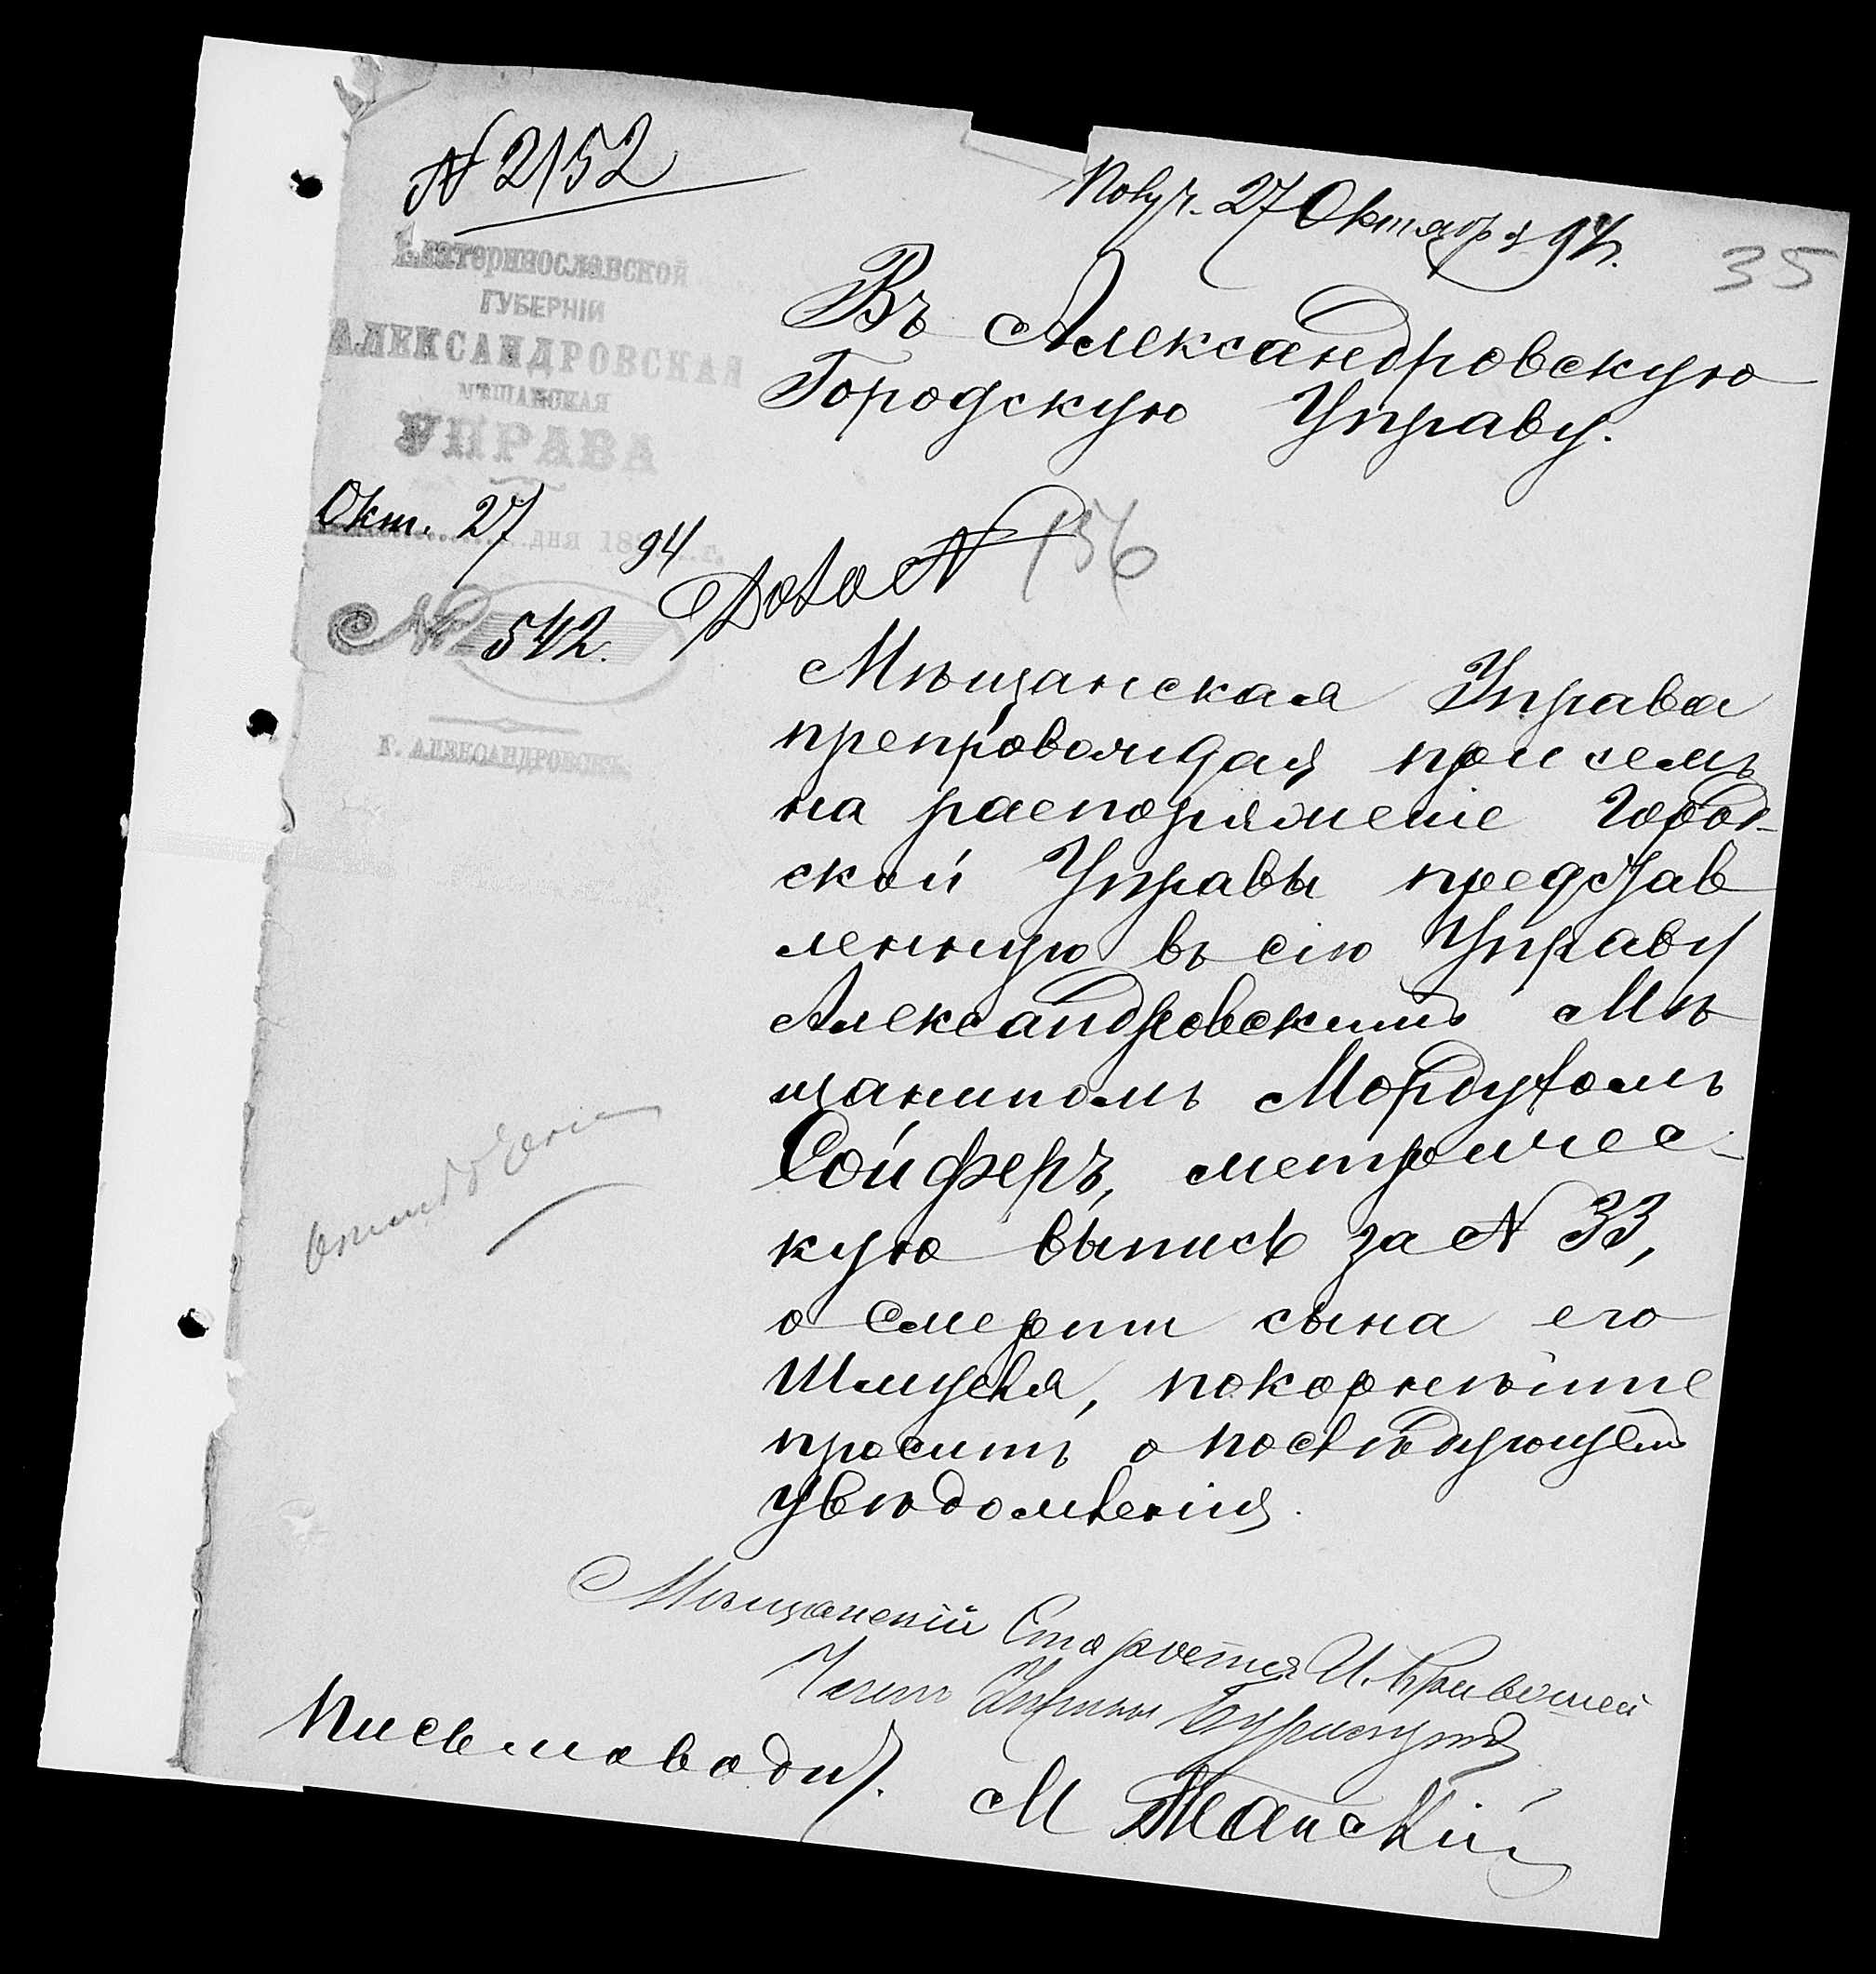 № 2152
Получ. 27 Октября 94 г.
35
Екатеринославской
ГУБЕРНІИ
АЛЕКСАНДРОВСКАЯ
МѢЩАНСКАЯ
УПРАВА
Окт. 27 дня 1894 г.
№ 542.
Г. АЛЕКСАНДРОВСКЪ.
Въ Александровскую
Городскую Управу.
Дѣло № 156
Мѣщанская Управа
препровождая при семъ
на распоряженіе Город-
ской Управы представ
ленную въ сію Управу
Александровскимъ Мѣ
щаниномъ Мордухомъ
Сойферъ, метричес-
кую выпись за № 33,
о смерти сына его
Шмуеля, покорнѣйше
проситъ о послѣдующемъ
увѣдомленія.
Мѣщанскій Староста И.
Членъ Управы
Письмовод.
М